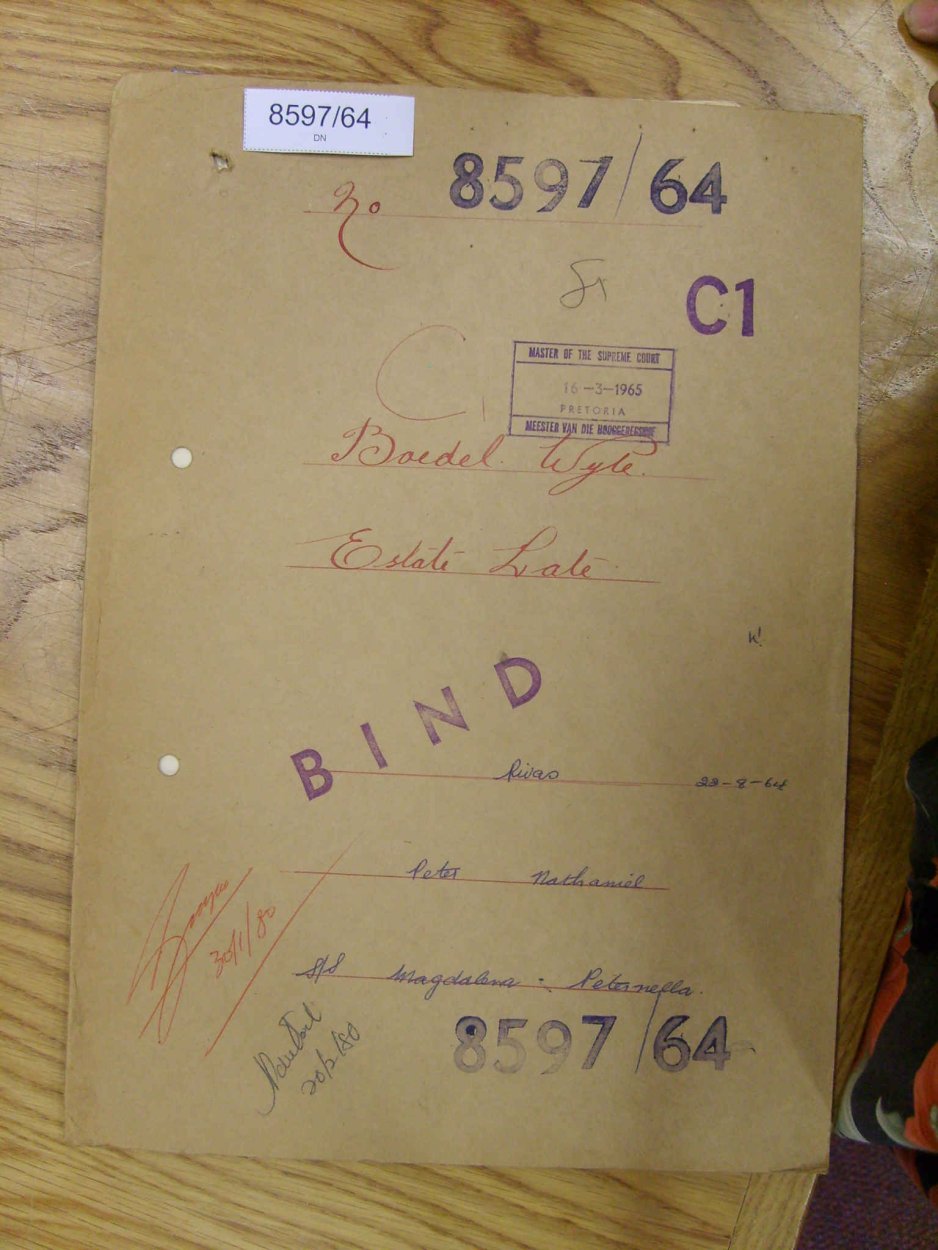 8597/64
DN
No 8597/64
C1
C1
MASTER OF THE SUPREME COURT
16-3-1965
PRETORIA
MEESTER VAN DIE HOOGGEREGSHOF
Boedel Wyle.
Estate Late
BIND
Rivas 22-8-64
Peter Nathaniel
30/1/80
S/S Magdalena Peternella.
20/2/80
8597/64